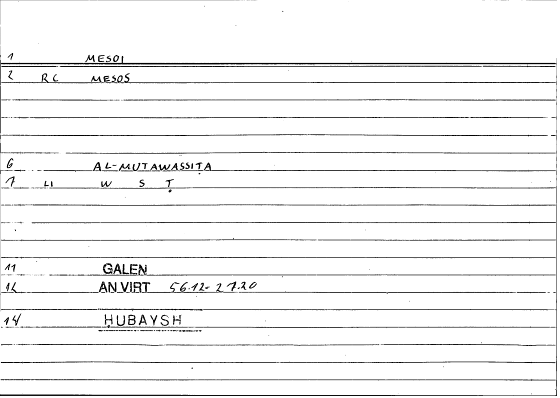 1 MESOI
2 RC MESOS
6 AL-MUTAWASSIṬA
7 LI W S Ṭ
11 GALEN
12 AN VIRT 56.12-27.20
14 ḤUBAYSH